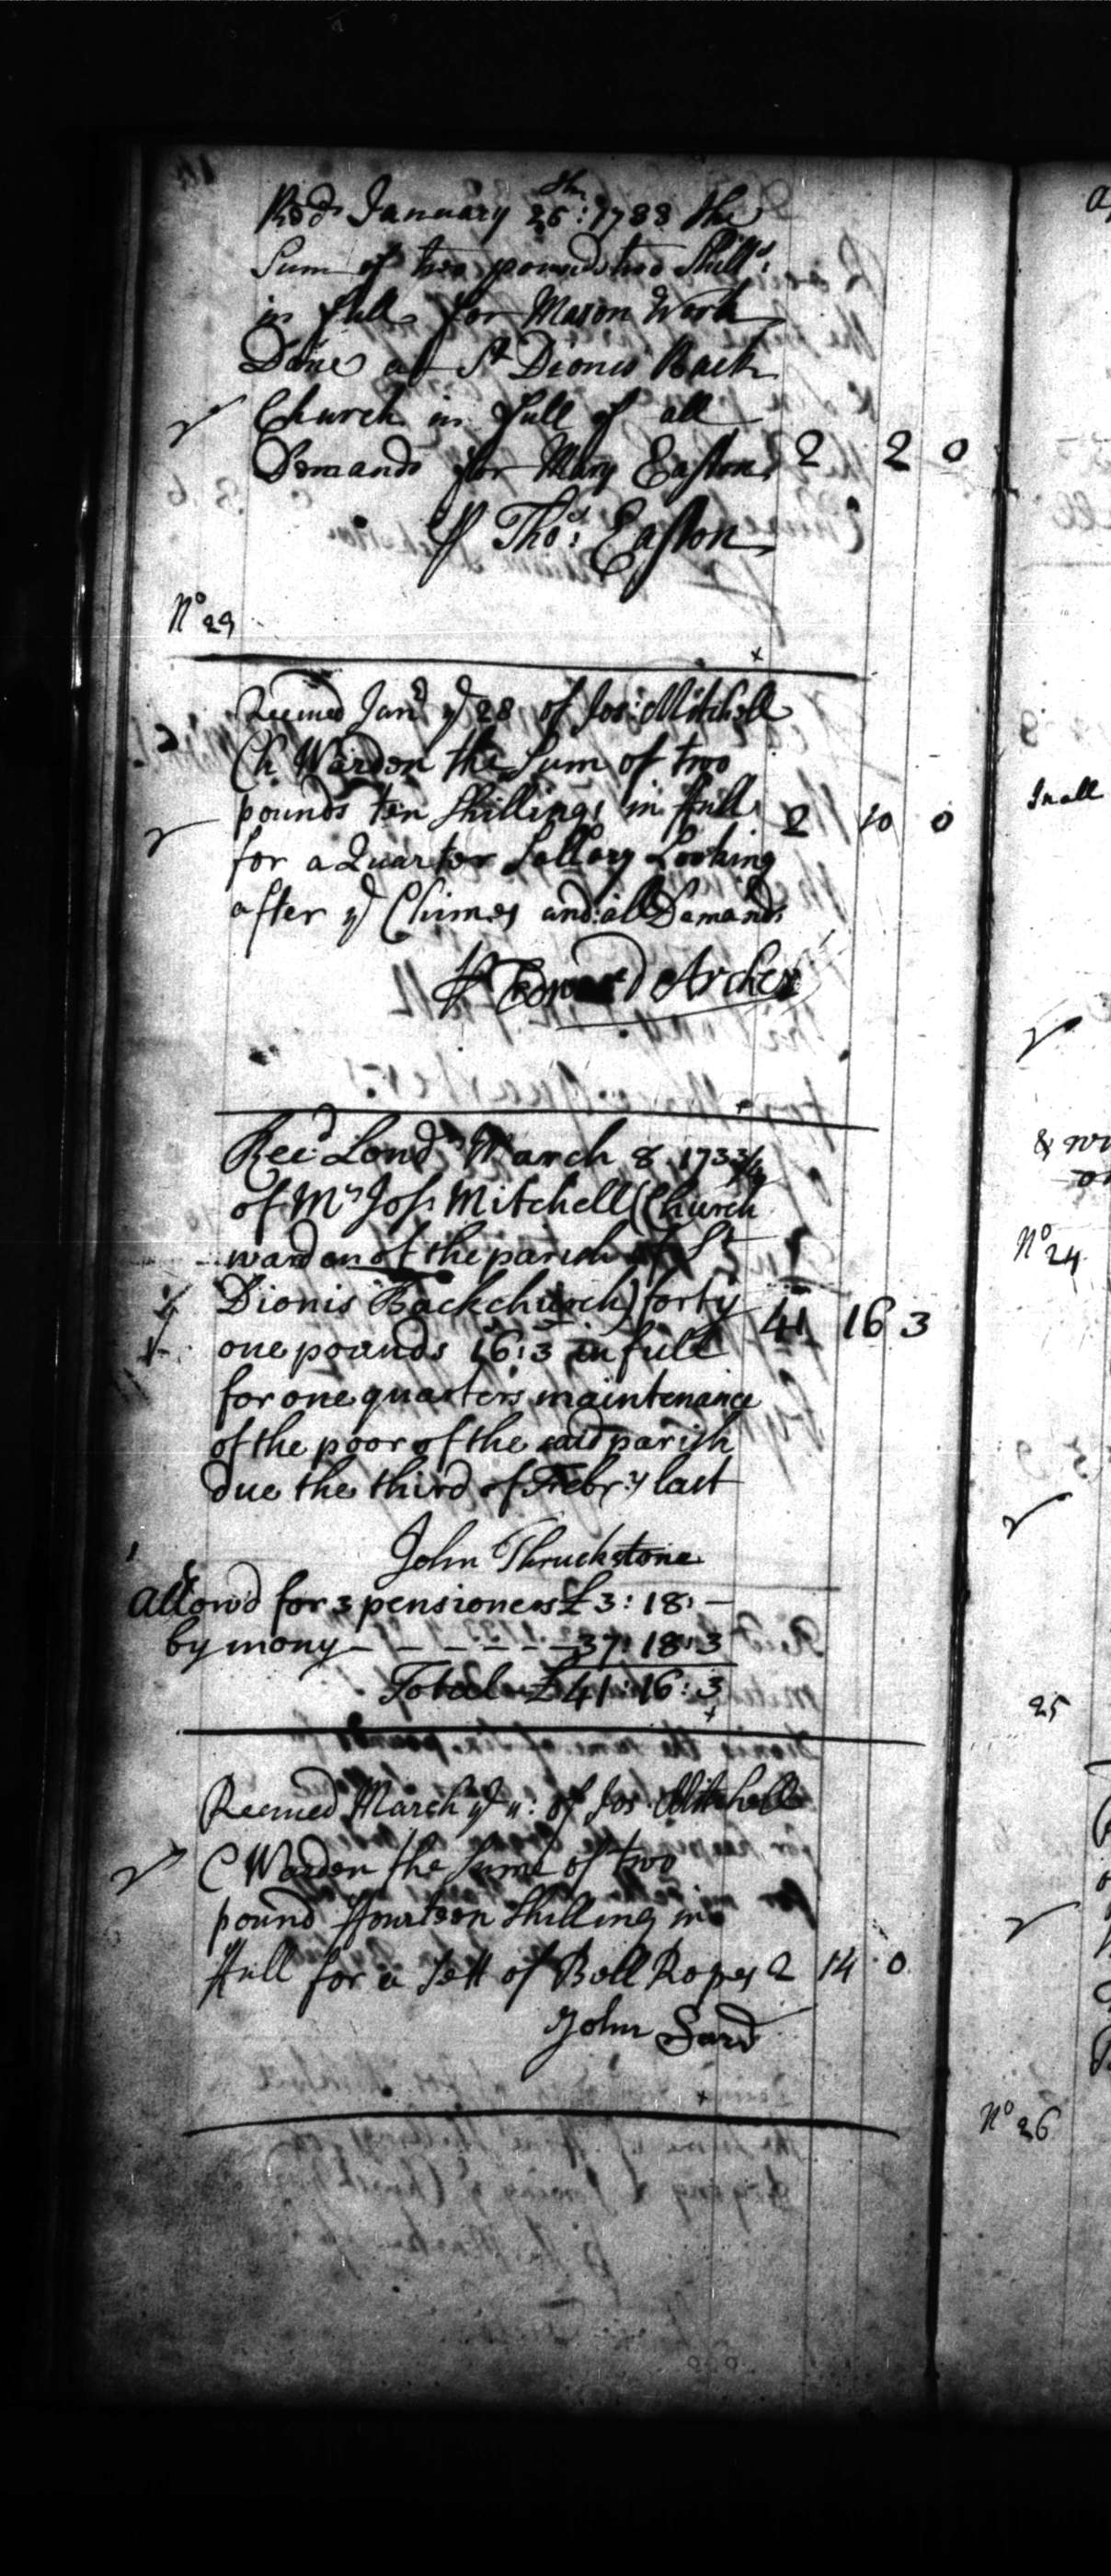 Recd January 26th: 1733 the
Sum of two pound two Shills
in full for Mason Work
Done at St Dionis Back
Church in full of all
Demands for Mary Easton 2 2 0
p Thos: Easton
No 23
Receiued Janr ye 28 of Jos: Mitchell
Ch Warden the Sum of two
pounds ten Shillings in full 2 10 0
for a Quarter Sallary Looking
after ye Chimes and all Demands
p Edward Archer
Recd Lond March 8 1733/4
of Mr Jos. Mitchell (Church
warden of the parish of St
Dionis Backchurch) forty 41 16 3
one pounds 16:3 in full
for one quarters maintenance
of the poor of the said parish
due the third of Febry last
John Thruckstone
Allow'd for 3 pensioners £3:18:-
by mony - - - - - - 37:18:3
Total £41:16:3
Receiued March ye 11: of Jos Mitchell
C Warden the Sume of two
pound ffourteen Shilling in
ffull for a Sett of Bell Ropes 2 14 0
John Sard
Jn all
No 24
25
No 26